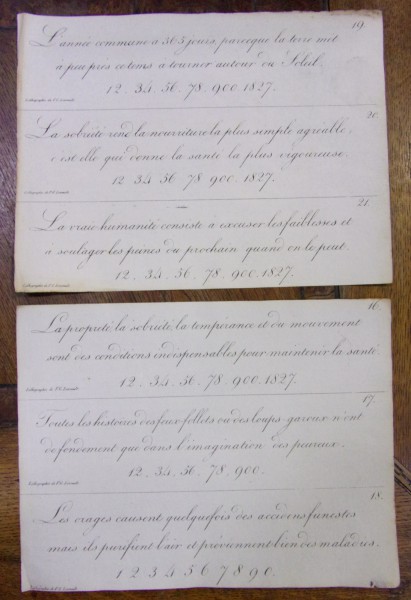 19.
L'année commune a 365 jours, parceque la terre met
à peu près ce tems à tourner autour du Soleil.
12. 34. 56. 78. 900. 1827.
Lithographie de
20.
La sobriété rend la nourriture la plus simple agréable,
c'est elle qui donne la santé la plus vigoureuse.
12. 34. 56. 78. 900. 1827.
Lithographie de
21.
La vraie humanité consiste à excuser les faiblesses et
à soulager les peines du prochain quand on le peut.
12. 34. 56. 78. 900. 1827.
16.
La propreté, la sobriété, la tempérance et du mouvement
sont des conditions indispensables pour maintenir la santé.
12. 34. 56. 78. 900. 1827.
Lithographie de
17.
Toutes les histoires des feux follets ou des loups-garoux n'ont
de fondement que dans l'imagination des peureux.
12. 34. 56. 78. 900.
Lithographie de
18.
Les orages causent quelquefois des accidens funestes
mais ils purifient l'air et préviennent bien des maladies.
1 2 3 4 5 6 7 8 9 0.
Lithographie de